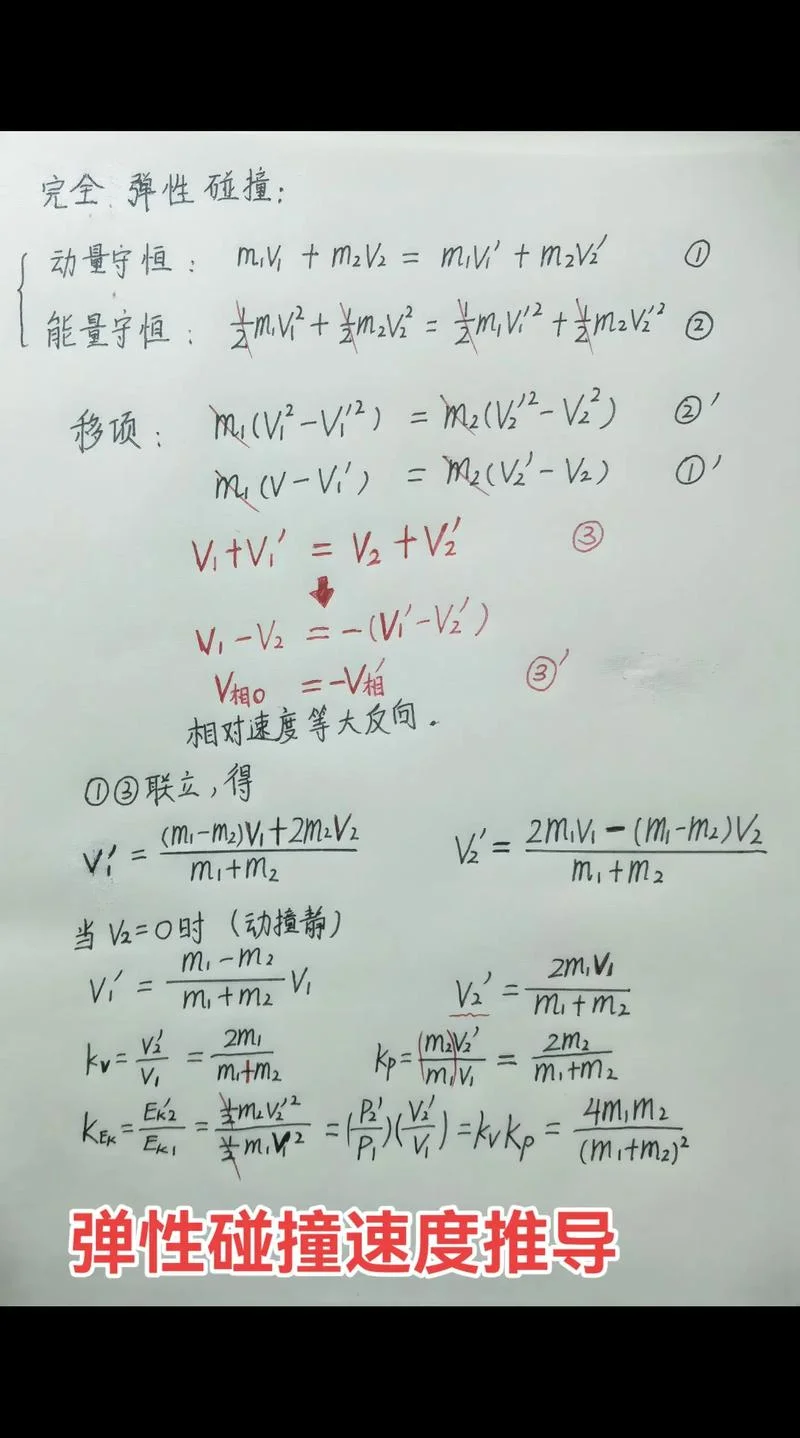 完全弹性碰撞:
动量守恒: m₁V₁ + m₂V₂ = m₁V₁′ + m₂V₂′ ①
能量守恒: ½m₁V₁² + ½m₂V₂² = ½m₁V₁′² + ½m₂V₂′² ②
移项: m₁(V₁² − V₁′²) = m₂(V₂′² − V₂²) ②′
m₁(V − V₁′) = m₂(V₂′ − V₂) ①′
V₁ + V₁′ = V₂ + V₂′ ③
V₁ − V₂ = −(V₁′ − V₂′)
V相₀ = −V相′ ③′
相对速度等大反向.
①③联立,得
V₁′ = ((m₁−m₂)V₁+2m₂V₂)/(m₁+m₂) V₂′ = (2m₁V₁−(m₁−m₂)V₂)/(m₁+m₂)
当 V₂=0时 (动撞静)
V₁′ = (m₁−m₂)/(m₁+m₂) V₁ V₂′ = 2m₁V₁/(m₁+m₂)
kᵥ = V₂′/V₁ = 2m₁/(m₁+m₂) kp = (m₂V₂′)/(m₁V₁) = 2m₂/(m₁+m₂)
k_Ek = Ek₂′/Ek₁ = ½m₂V₂′²/½m₁V₁² = (P₂′/P₁)(V₂′/V₁) = kᵥkp = 4m₁m₂/(m₁+m₂)²
弹性碰撞速度推导